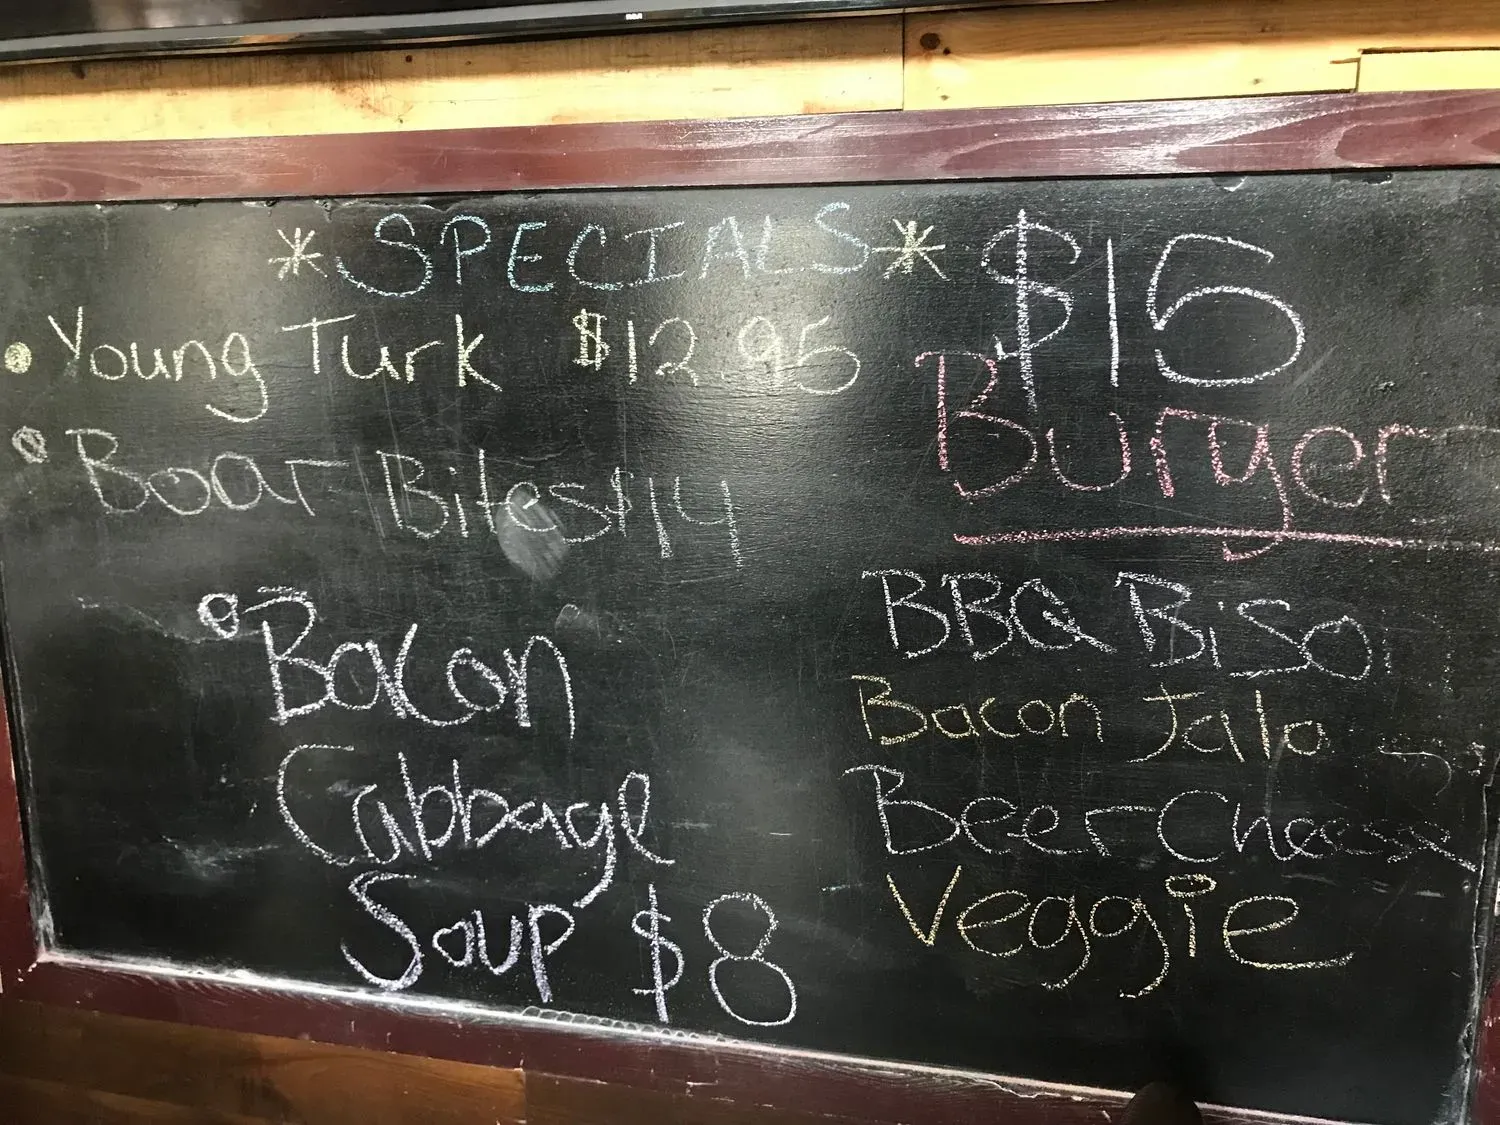 RCA
* SPECIALS *
• Young Turk $12.95
• Boar Bites $14
• Bacon
Cabbage
Soup $8
$15
Burger
BBQ Biso
Bacon Jala
Beer Cheese
Veggie